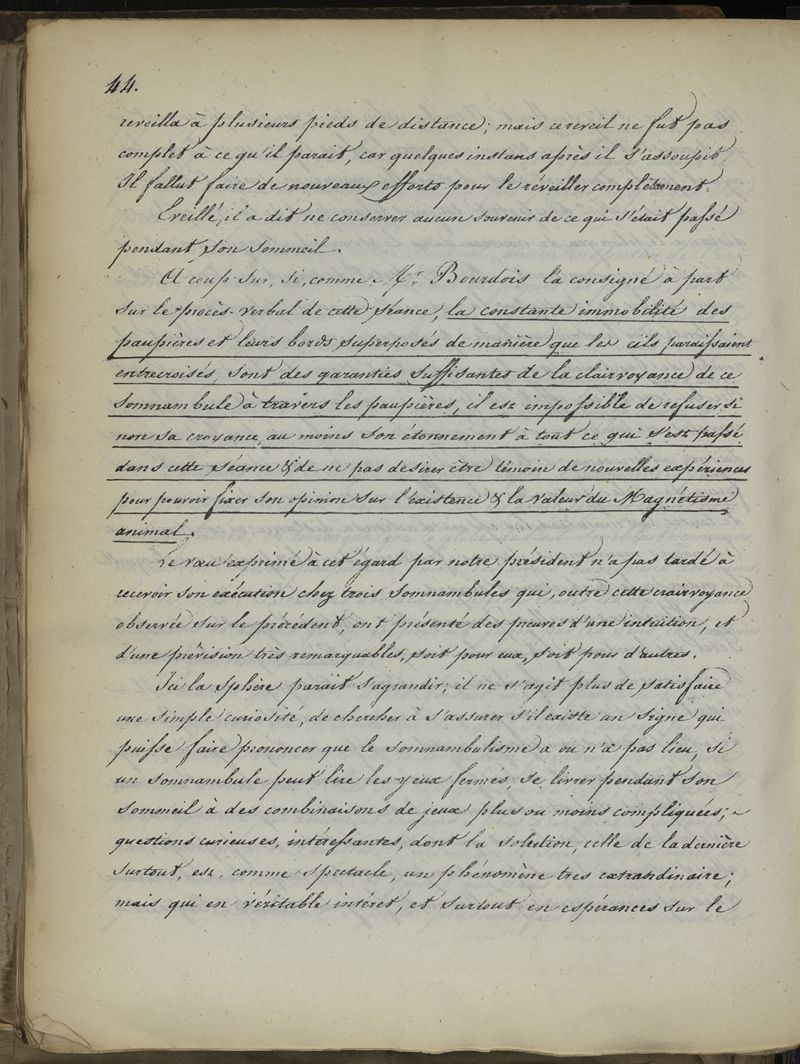 44.
reveilla à plusieurs pieds de distance; mais ce reveil ne fut pas
complet à ce qu'il parait, car quelques instans après il s'assoupit
Il fallut faire de nouveaux efforts pour le réveiller complètement.
Eveillé, il a dit ne conserver aucun souvenir de ce qui s'était passé
pendant son sommeil.
A coup sur, si, comme Mr. Bourdois la consigné à part
sur le procès-verbal de cette séance, la constante immobilité des
paupières et leurs bords superposés de manière que les cils paraissaient
entrecroisés, sont des garanties suffisantes de la clairvoyance de ce
somnambule à travers les paupières, il est impossible de refuser si
non sa croyance, au moins son étonnement à tout ce qui s'est passé
dans cette séance & de ne pas desirer être témoin de nouvelles expériences
pour pouvoir fixer son opinion sur l'existence & la valeur du Magnétisme
animal.
Le vœu exprimé à cet égard par notre président n'a pas tardé à
recevoir son exécution chez trois somnambules qui, outre cette clairvoyance
observée sur le précédent, ont présenté des preuves d'une intuition, et
d'une prévision très remarquables, soit pour eux, soit pour d'autres.
Ici la sphère parait s'agrandir; il ne s'agit plus de satisfaire
une simple curiosité, de chercher à s'assurer s'il existe un signe qui
puisse faire prononcer que le somnambulisme a ou n'a pas lieu, si
un somnambule peut lire les yeux fermés, se livrer pendant son
sommeil à des combinaisons de jeux plus ou moins compliquées;
questions curieuses, intéressantes, dont la solution, celle de la dernière
surtout, est, comme spectacle, un phénomène tres extraordinaire;
mais qui en véritable intéret, et surtout en espérances sur le